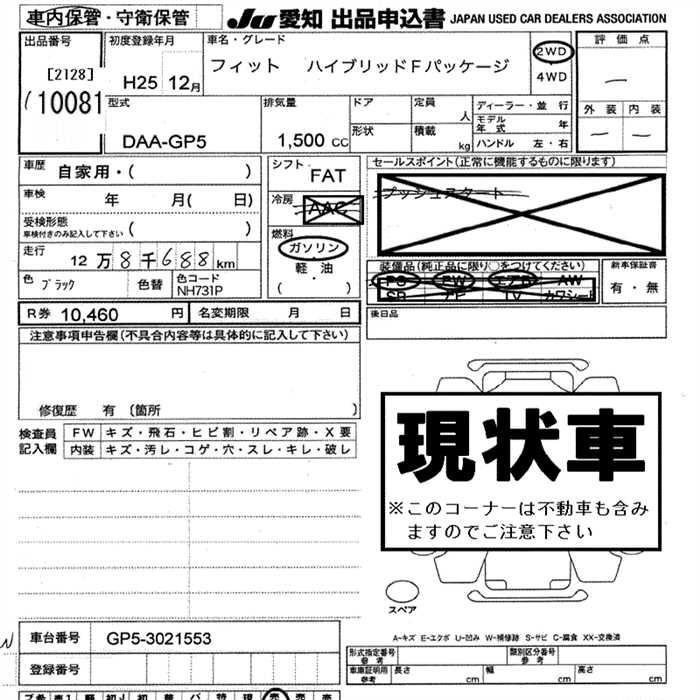 車内保管・守衛保管
JU 愛知 出品申込書 JAPAN USED CAR DEALERS ASSOCIATION
出品番号 初度登録年月 車名・グレード 評価点
[2128] フィット ハイブリッドFパッケージ 2WD
10081 H25 12月 4WD
外装 内装
型式 排気量 ドア 定員 人 ディーラー・並行
モデル年式 年
DAA-GP5 1,500 CC 形状 積載 kg ハンドル 左・右
車歴 自家用・( ) シフト FAT セールスポイント(正常に機能するものに限ります)
車検 年 月( 日) 冷房 AAC プッシュスタート
受検形態 ( )
車検付きのみ記入して下さい
燃料 ガソリン
軽・油
( )
走行 12万8千688km
装備品(純正品に限り○をつけてください) 新車保証書
PS PW エアB AW 有・無
SR TV カワシート
色 ブラック 色替 色コード NH731P
R券 10,460 円 名変期限 月 日 後日品
注意事項申告欄(不具合内容等は具体的に記入して下さい)
修復歴 有 (箇所 )
検査員記入欄 FW キズ・飛石・ヒビ割・リペア跡・X要
内装 キズ・汚レ・コゲ・穴・スレ・キレ・破レ
現状車
※このコーナーは不動車も含み
ますのでご注意下さい
スペア
A-キズ E-エクボ U-凹み W-補修跡 S-サビ C-腐食 XX-交換済
車台番号 GP5-3021553
形式指定番号 参考 類別区分番号 参考
登録番号
車庫証明用 参考 長さ 幅 高さ